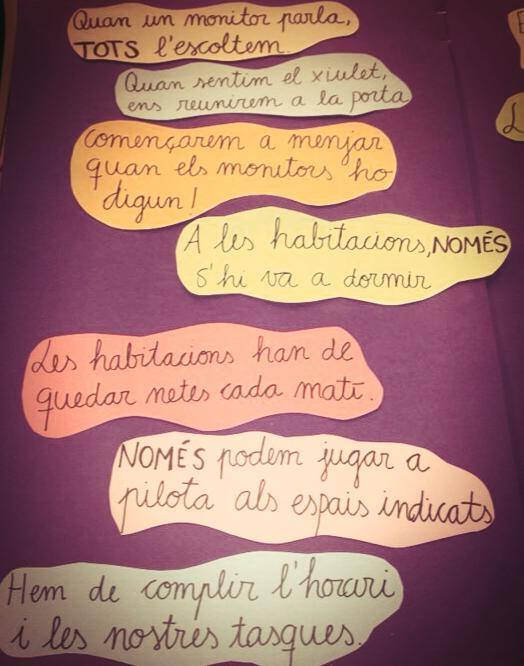 Quan un monitor parla,
TOTS l'escoltem.
Quan sentim el xiulet,
ens reunirem a la porta
Començarem a menjar
quan els monitors ho
digun!
A les habitacions, NOMÉS
s'hi va a dormir
Les habitacions han de
quedar netes cada matí.
NOMÉS podem jugar a
pilota als espais indicats
Hem de complir l'horari
i les nostres tasques.